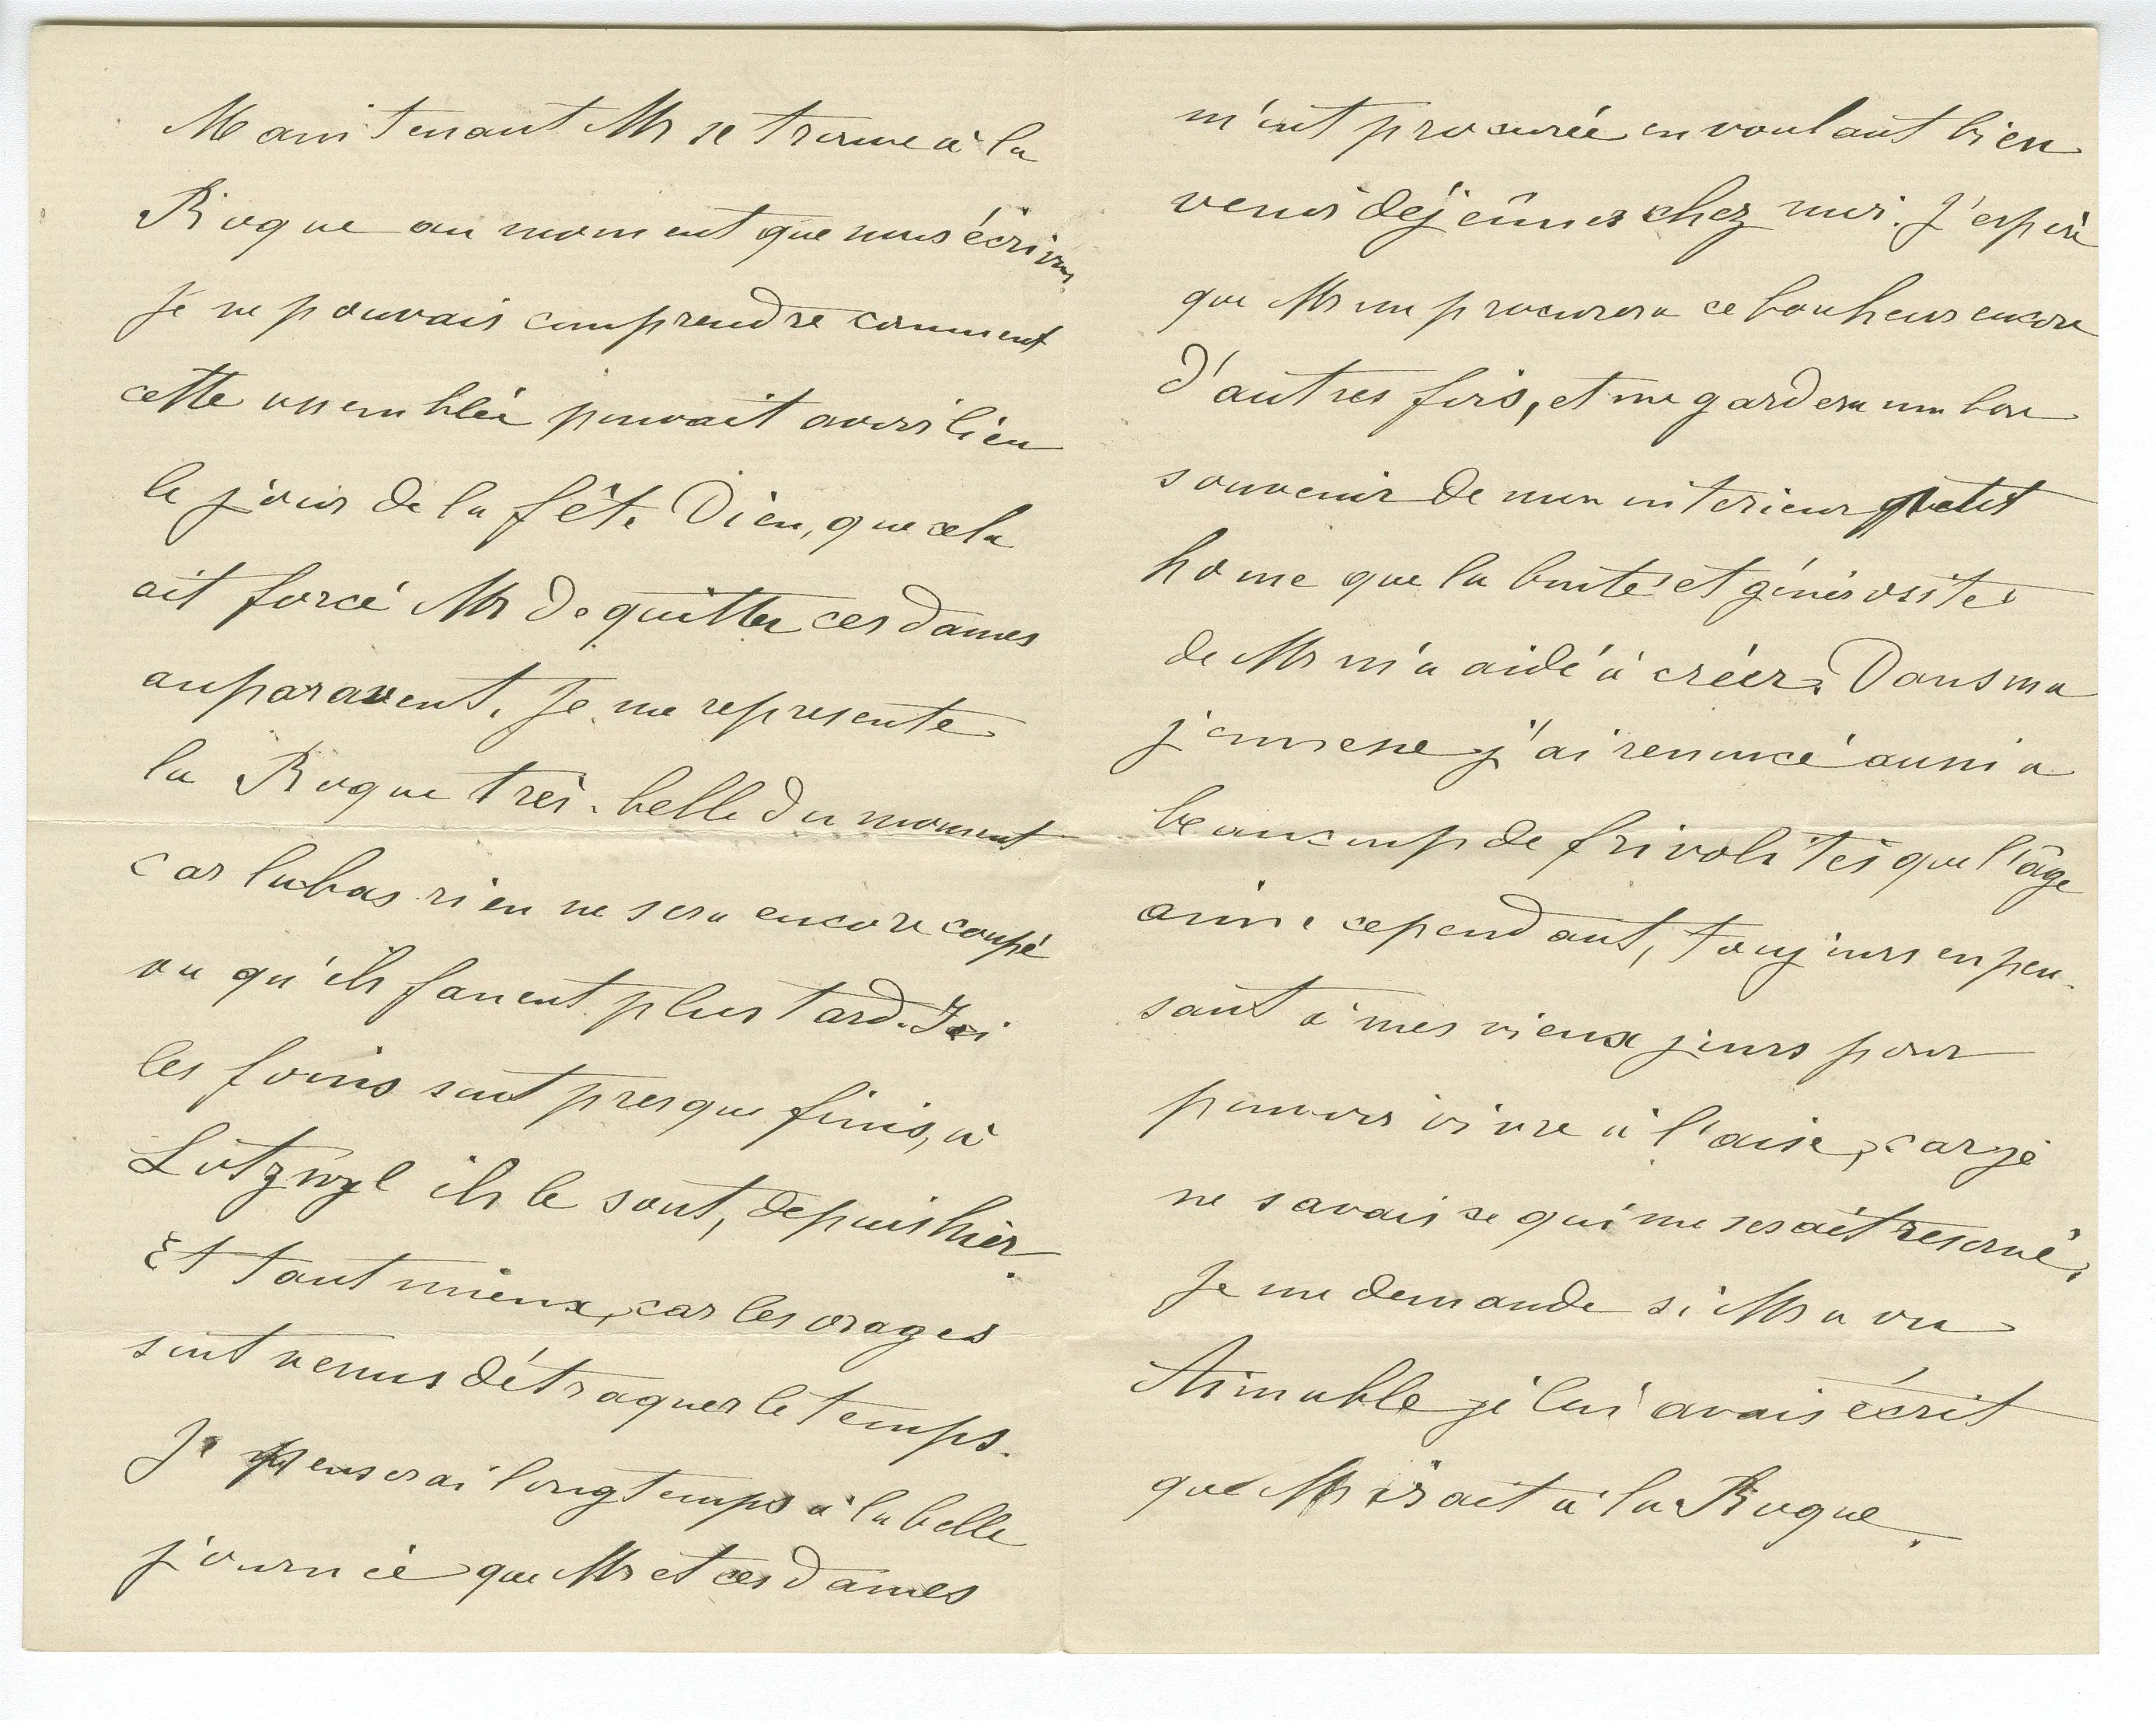 Maintenant Mr se trouve à la
Roque au moment que nous écrivons
Je ne pouvais comprendre comment
cette assemblée pouvait avoir lieu
le jour de la fête Dieu, que cela
ait forcé Mr de quitter ces dames
auparavent. Je me represente
la Roque très-belle du moment
car labas rien ne sera encore coupé
vu qu'ils fanent plus tard. Ici
les foins sont presque finis, à
Lotzwyl ils le sont, depuis hier.
Et tant mieux, car les orages
sont venus détraquer le temps.
Je penserai longtemps à la belle
journée que Mr et ces dames
m'ont procurée en voulant bien
venir déjeûner chez moi. J'espère
que Mr me procurera ce bonheur encore
d'autres fois, et me gardera un bon
souvenir de mon interieur petit
home que la bonté et générosité
de Mr m'a aidé à créer. Dans ma
jeunesse j'ai renoncé aussi a
beaucoup de frivolités que l'âge
aime cependant, toujours en pen-
sant à mes vieux jours pour
pouvoir vivre à l'aise, car je
ne savais ce qui me serait reservé.
Je me demande si Mr a vu
Aimable je lui avais écrit
que Mr irait à la Roque.